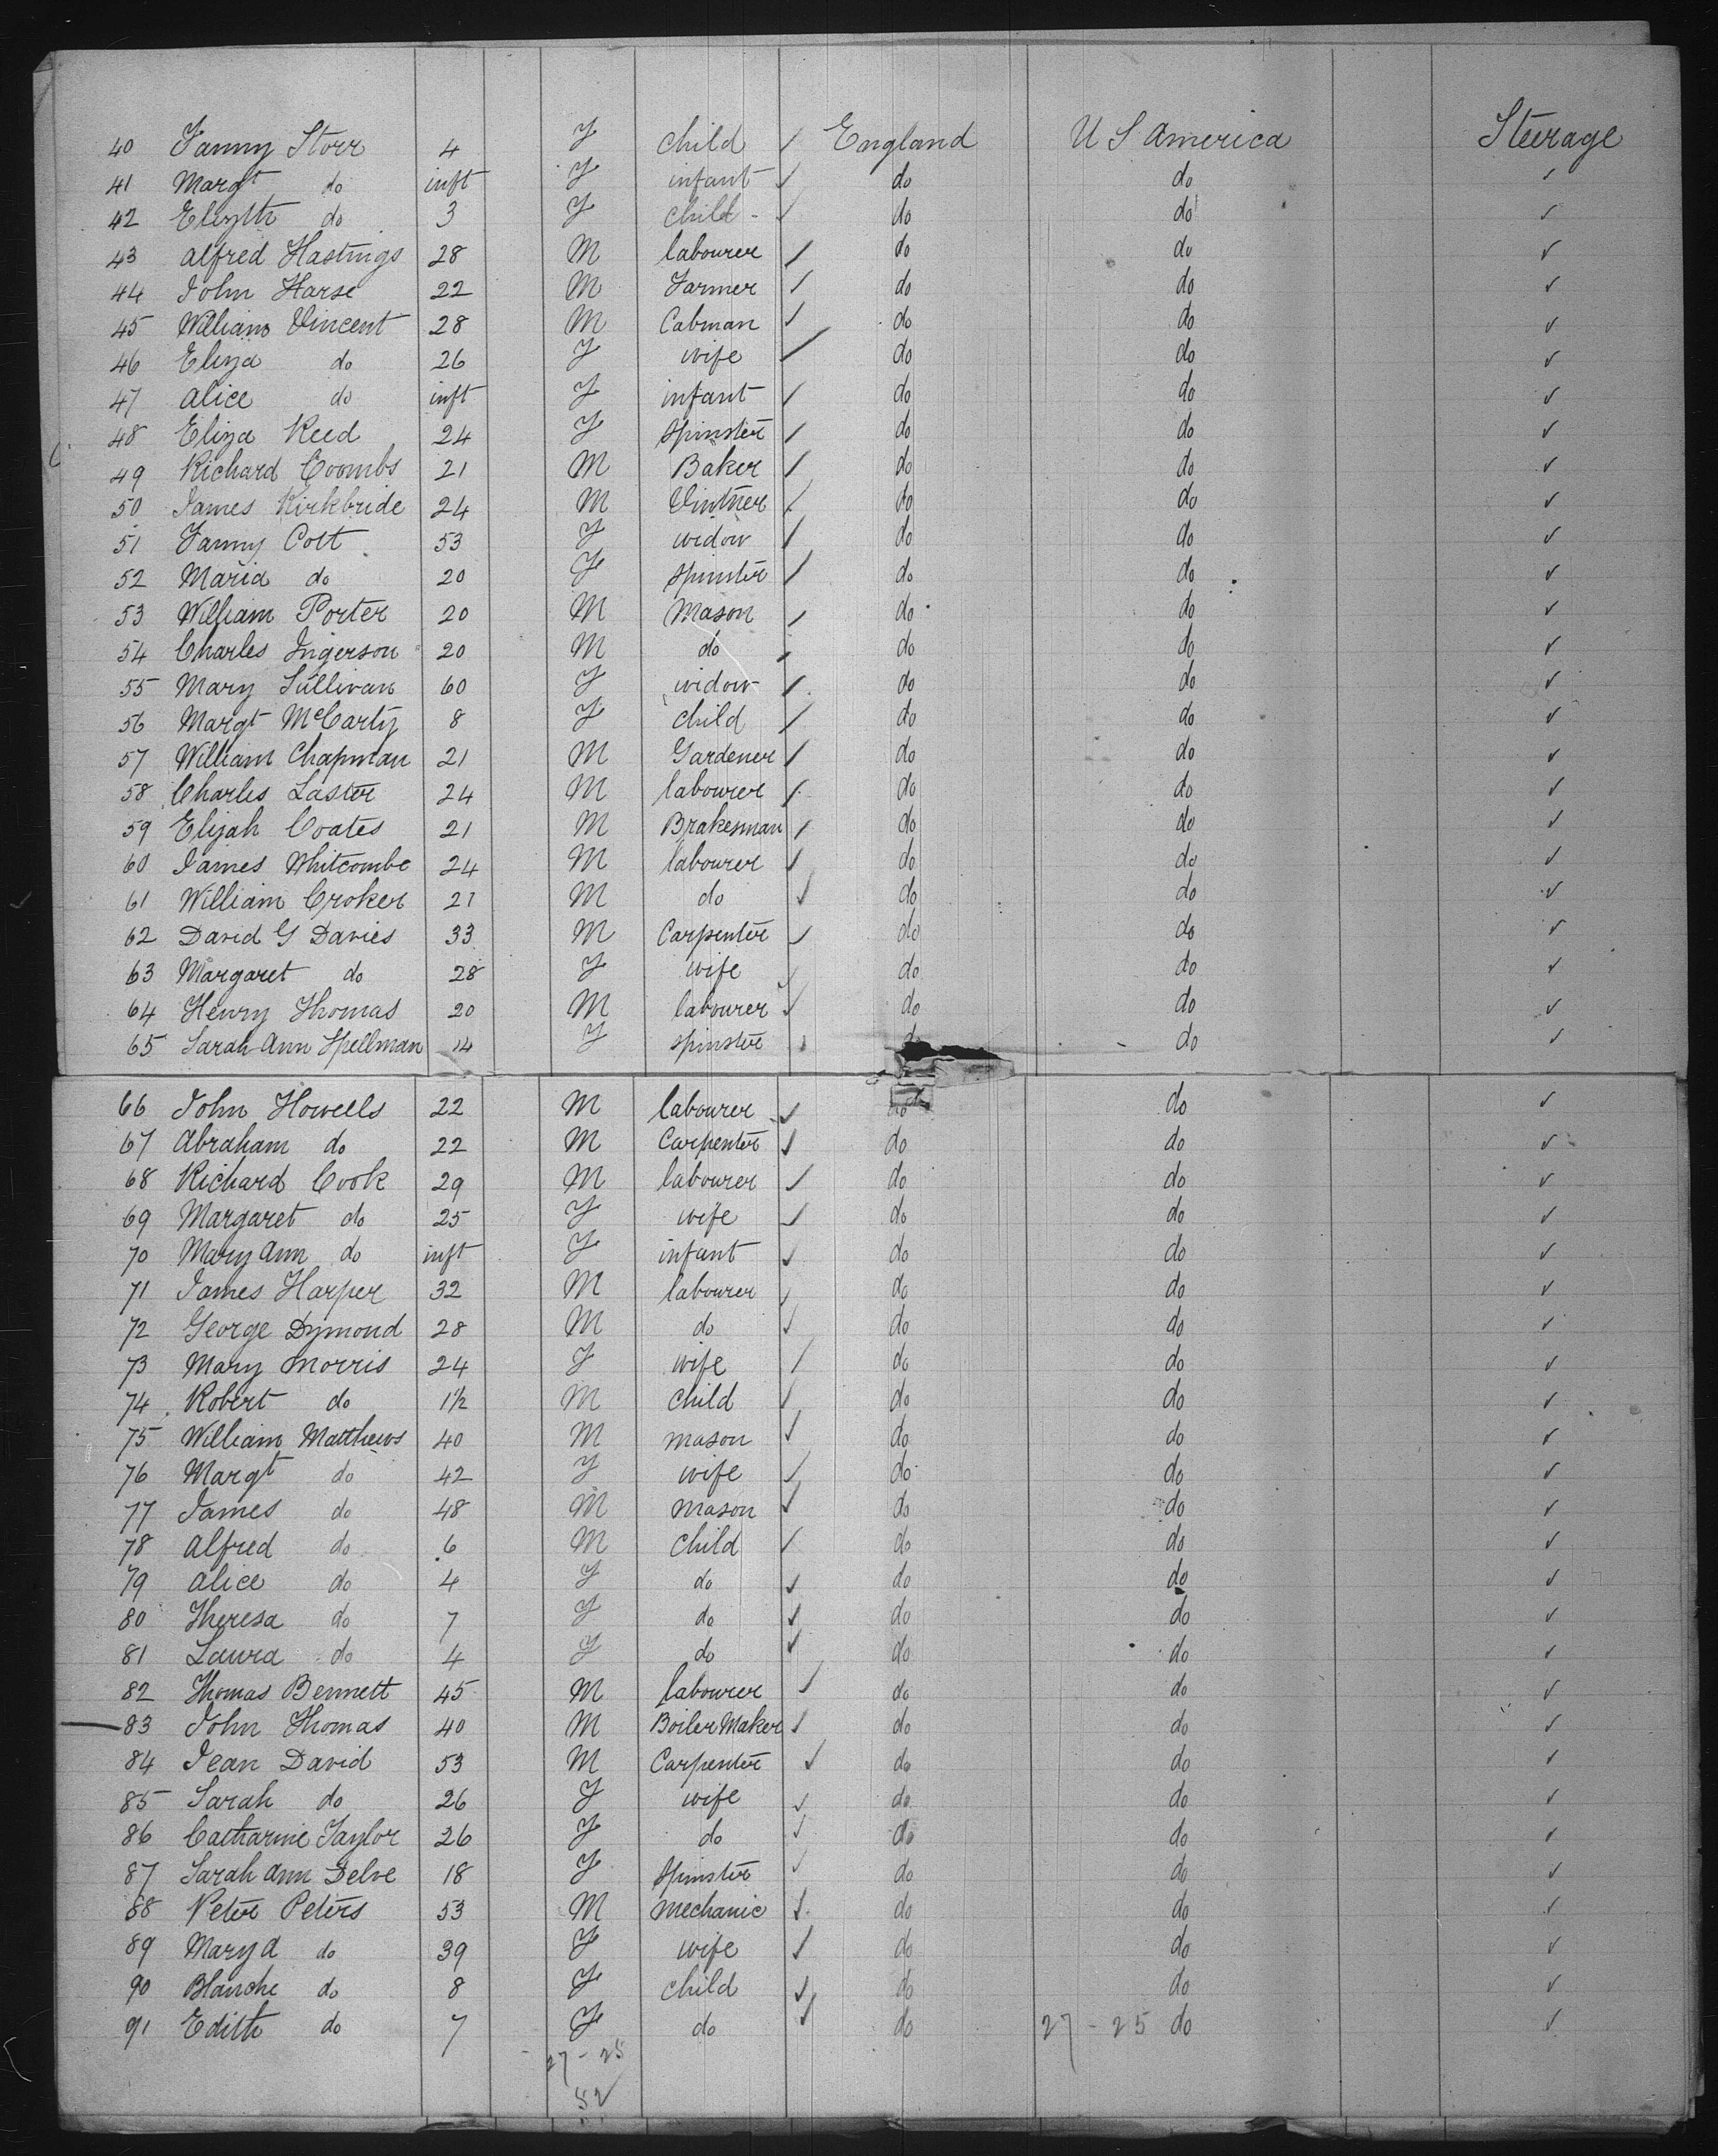 40 Fanny Storr 4 F child England U S America Steerage
41 Margt do inft F infant do do
42 Elizth do 3 F child do do
43 Alfred Hastings 28 M labourer do do
44 John Harse 22 M Farmer do do
45 William Vincent 28 M Cabman do do
46 Eliza do 26 F wife do do
47 Alice do inft F infant do do
48 Eliza Reed 24 F spinster do do
49 Richard Coombs 21 M Baker do do
50 James Kirkbride 24 M Vintner do do
51 Fanny Cott 53 F widow do do
52 Maria do 20 F spinster do do
53 William Porter 20 M Mason do do
54 Charles Ingerson 20 M do do do
55 Mary Sullivan 60 F widow do do
56 Margt McCarty 8 F child do do
57 William Chapman 21 M Gardener do do
58 Charles Laster 24 M labourer do do
59 Elijah Coates 21 M Brakesman do do
60 James Whitcombe 24 M labourer do do
61 William Croker 21 M do do do
62 David G Davies 33 M Carpenter do do
63 Margaret do 28 F wife do do
64 Henry Thomas 20 M labourer do do
65 Sarah Ann Spellman 14 F spinster do do
66 John Howells 22 M labourer do do
67 Abraham do 22 M Carpenter do do
68 Richard Cook 29 M labourer do do
69 Margaret do 25 F wife do do
70 Mary Ann do inft F infant do do
71 James Harper 32 M labourer do do
72 George Dymond 28 M do do do
73 Mary Morris 24 F wife do do
74 Robert do 1½ M child do do
75 William Matthews 40 M mason do do
76 Margt do 42 F wife do do
77 James do 48 M Mason do do
78 Alfred do 6 M child do do
79 Alice do 4 F do do do
80 Theresa do 7 F do do do
81 Laura do 4 F do do do
82 Thomas Bennett 45 M labourer do do
83 John Thomas 40 M Boiler Maker do do
84 Jean David 53 M Carpenter do do
85 Sarah do 26 F wife do do
86 Catharine Taylor 26 F do do do
87 Sarah Ann Delve 18 F spinster do do
88 Peter Peters 53 M mechanic do do
89 Mary A do 39 F wife do do
90 Blanche do 8 F child do do
91 Edith do 7 F do do 27 - 25 do
27 - 25
52